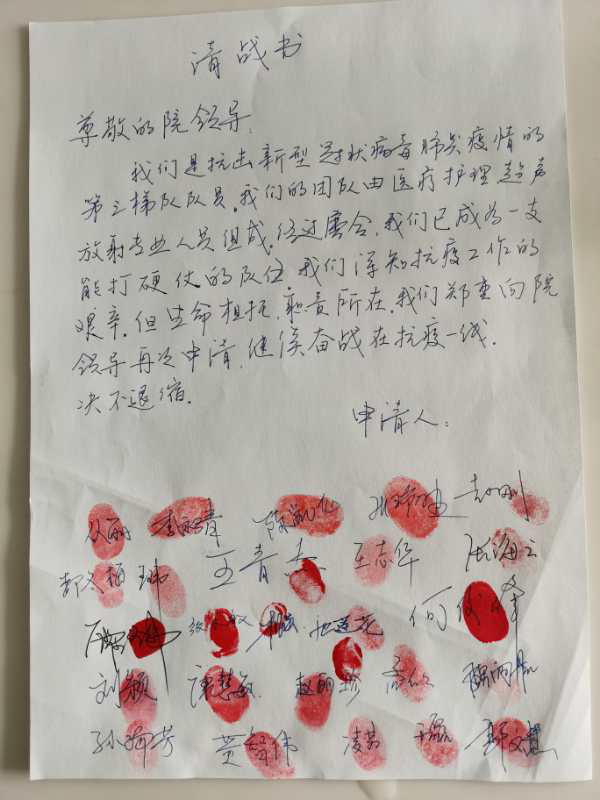 请战书
尊敬的院领导.
我们是抗击新型冠状病毒肺炎疫情的
第三梯队队员.我们的团队由医疗护理超声
放射专业人员组成.经过磨合,我们已成为一支
能打硬仗的队伍.我们深知抗疫工作的
艰辛.但生命相托,职责所在.我们郑重向院
领导再次申请,继续奋战在抗疫一线.
决不退缩.
申请人:
王青
王志华
张海
刘颖 谭慧敏 赵丽珍
孙海芳 黄智伟 凌芳